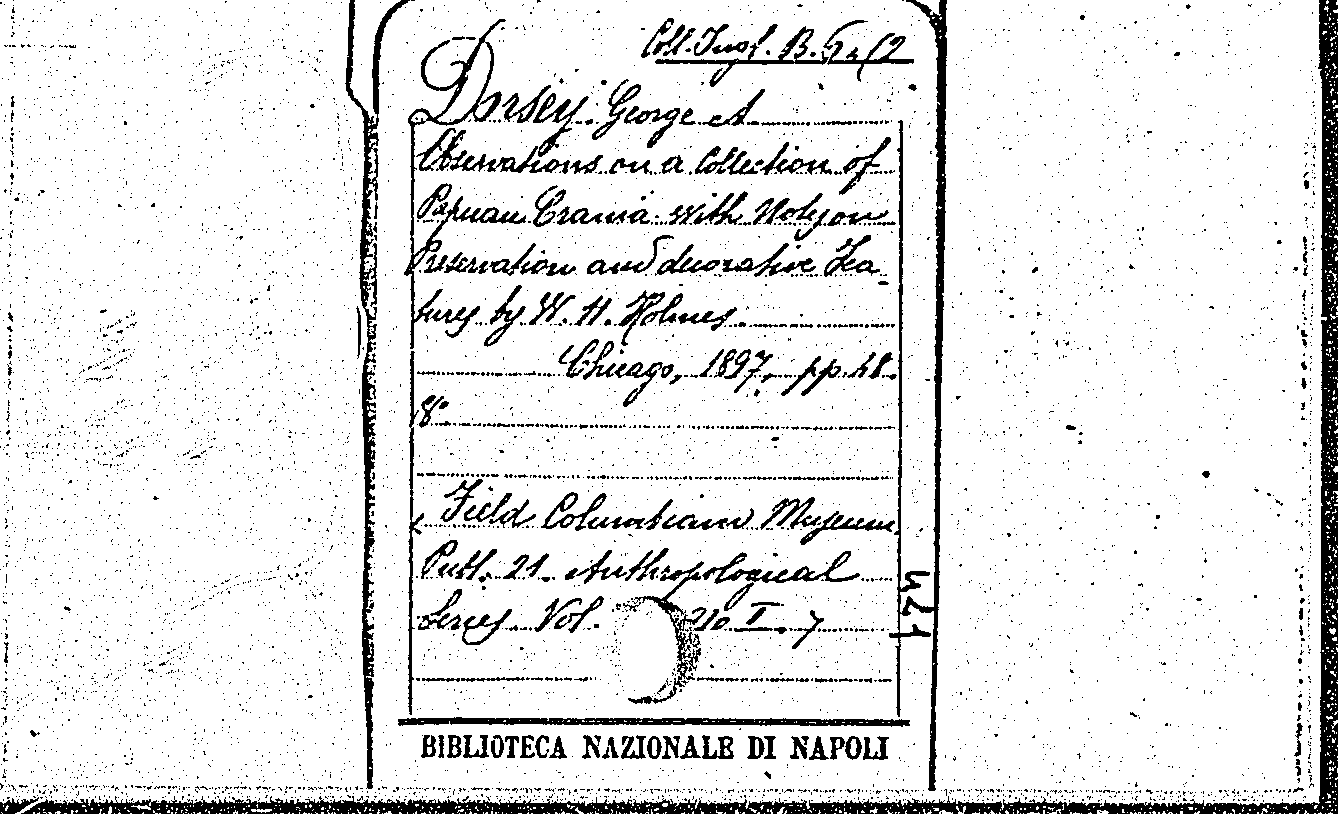 Coll. Ingl. B.
Dorsey. George A.
Observations on a Collection of
Papuan Crania with Notes on
Preservation and decorative Fea
tures by W. H. Holmes.
Chicago, 1897, pp. 48.
8°
( Field Columbian Museum
Publ. 21. Anthropological
Series. Vol. No I. )
BIBLIOTECA NAZIONALE DI NAPOLI